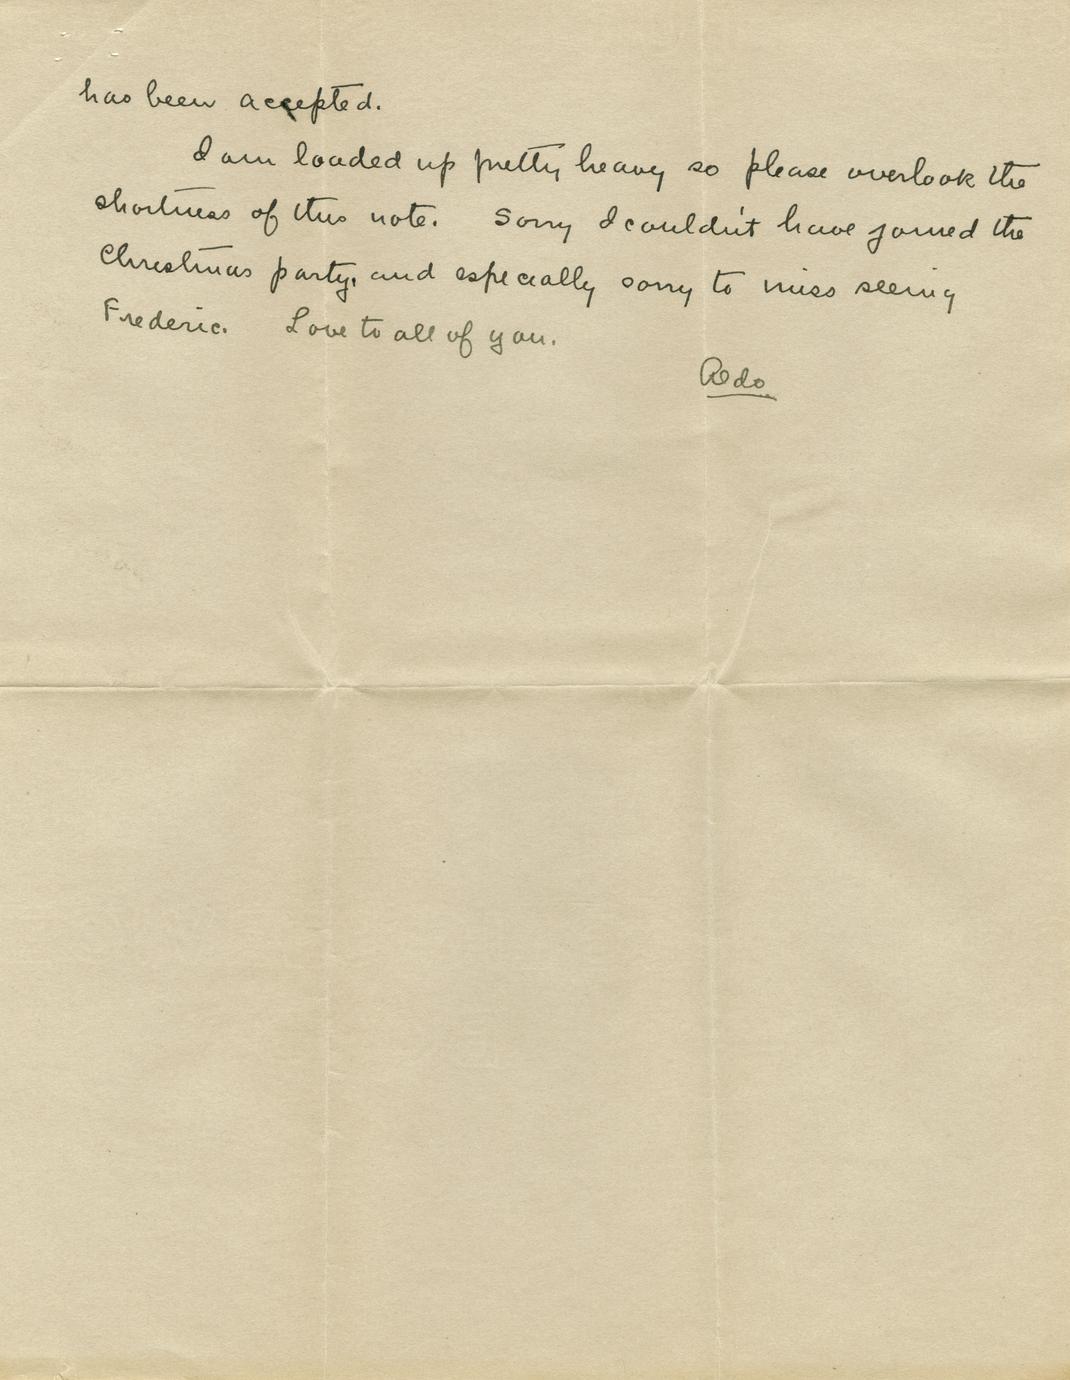 has been accepted.
I am loaded up pretty heavy so please overlook the
shortness of this note. Sorry I couldn't have joined the
Christmas party, and especially sorry to miss seeing
Frederic. Love to all of you.
Aldo